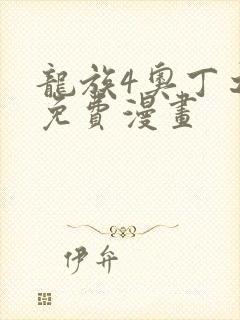 龍族4奧丁
免費漫畫
伊弁